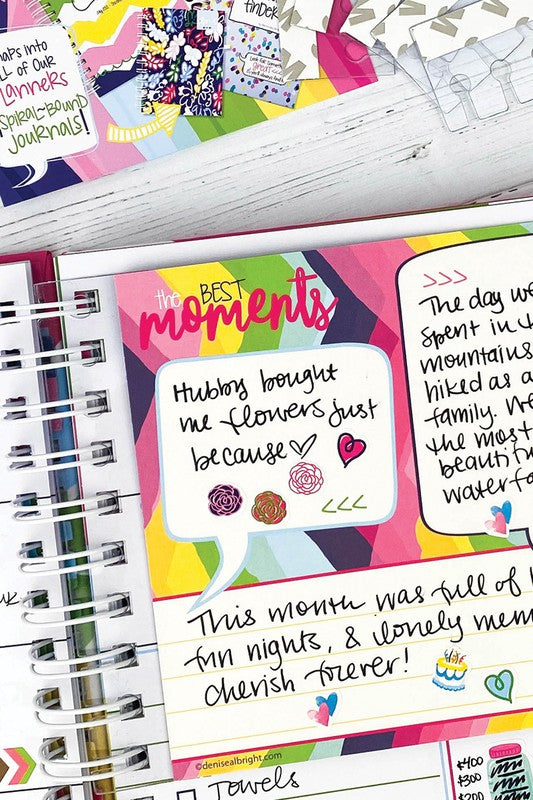 ALL of Our
Planners
Spiral-Bound
Journals!
the BEST
moments
Hubby bought
me flowers just
because
>>>
The day we
spent in th
mountains
hiked as a
family. We
the most
beautifu
waterfa
<<<
This month was full of
fun nights, & lovely mem
cherish forever!
©denisealbright.com
Towels
$400
$300
$200